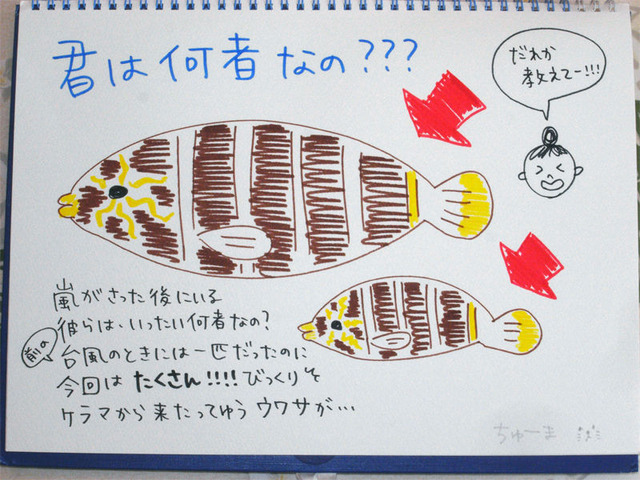 君は何者なの???
だれか
教えてー!!!
嵐がさった後にいる
彼らは、いったい何者なの?
前の
台風のときには一匹だったのに
今回はたくさん!!!!びっくりそ
ケラマから来たってゆうウワサが…
ちゅーま